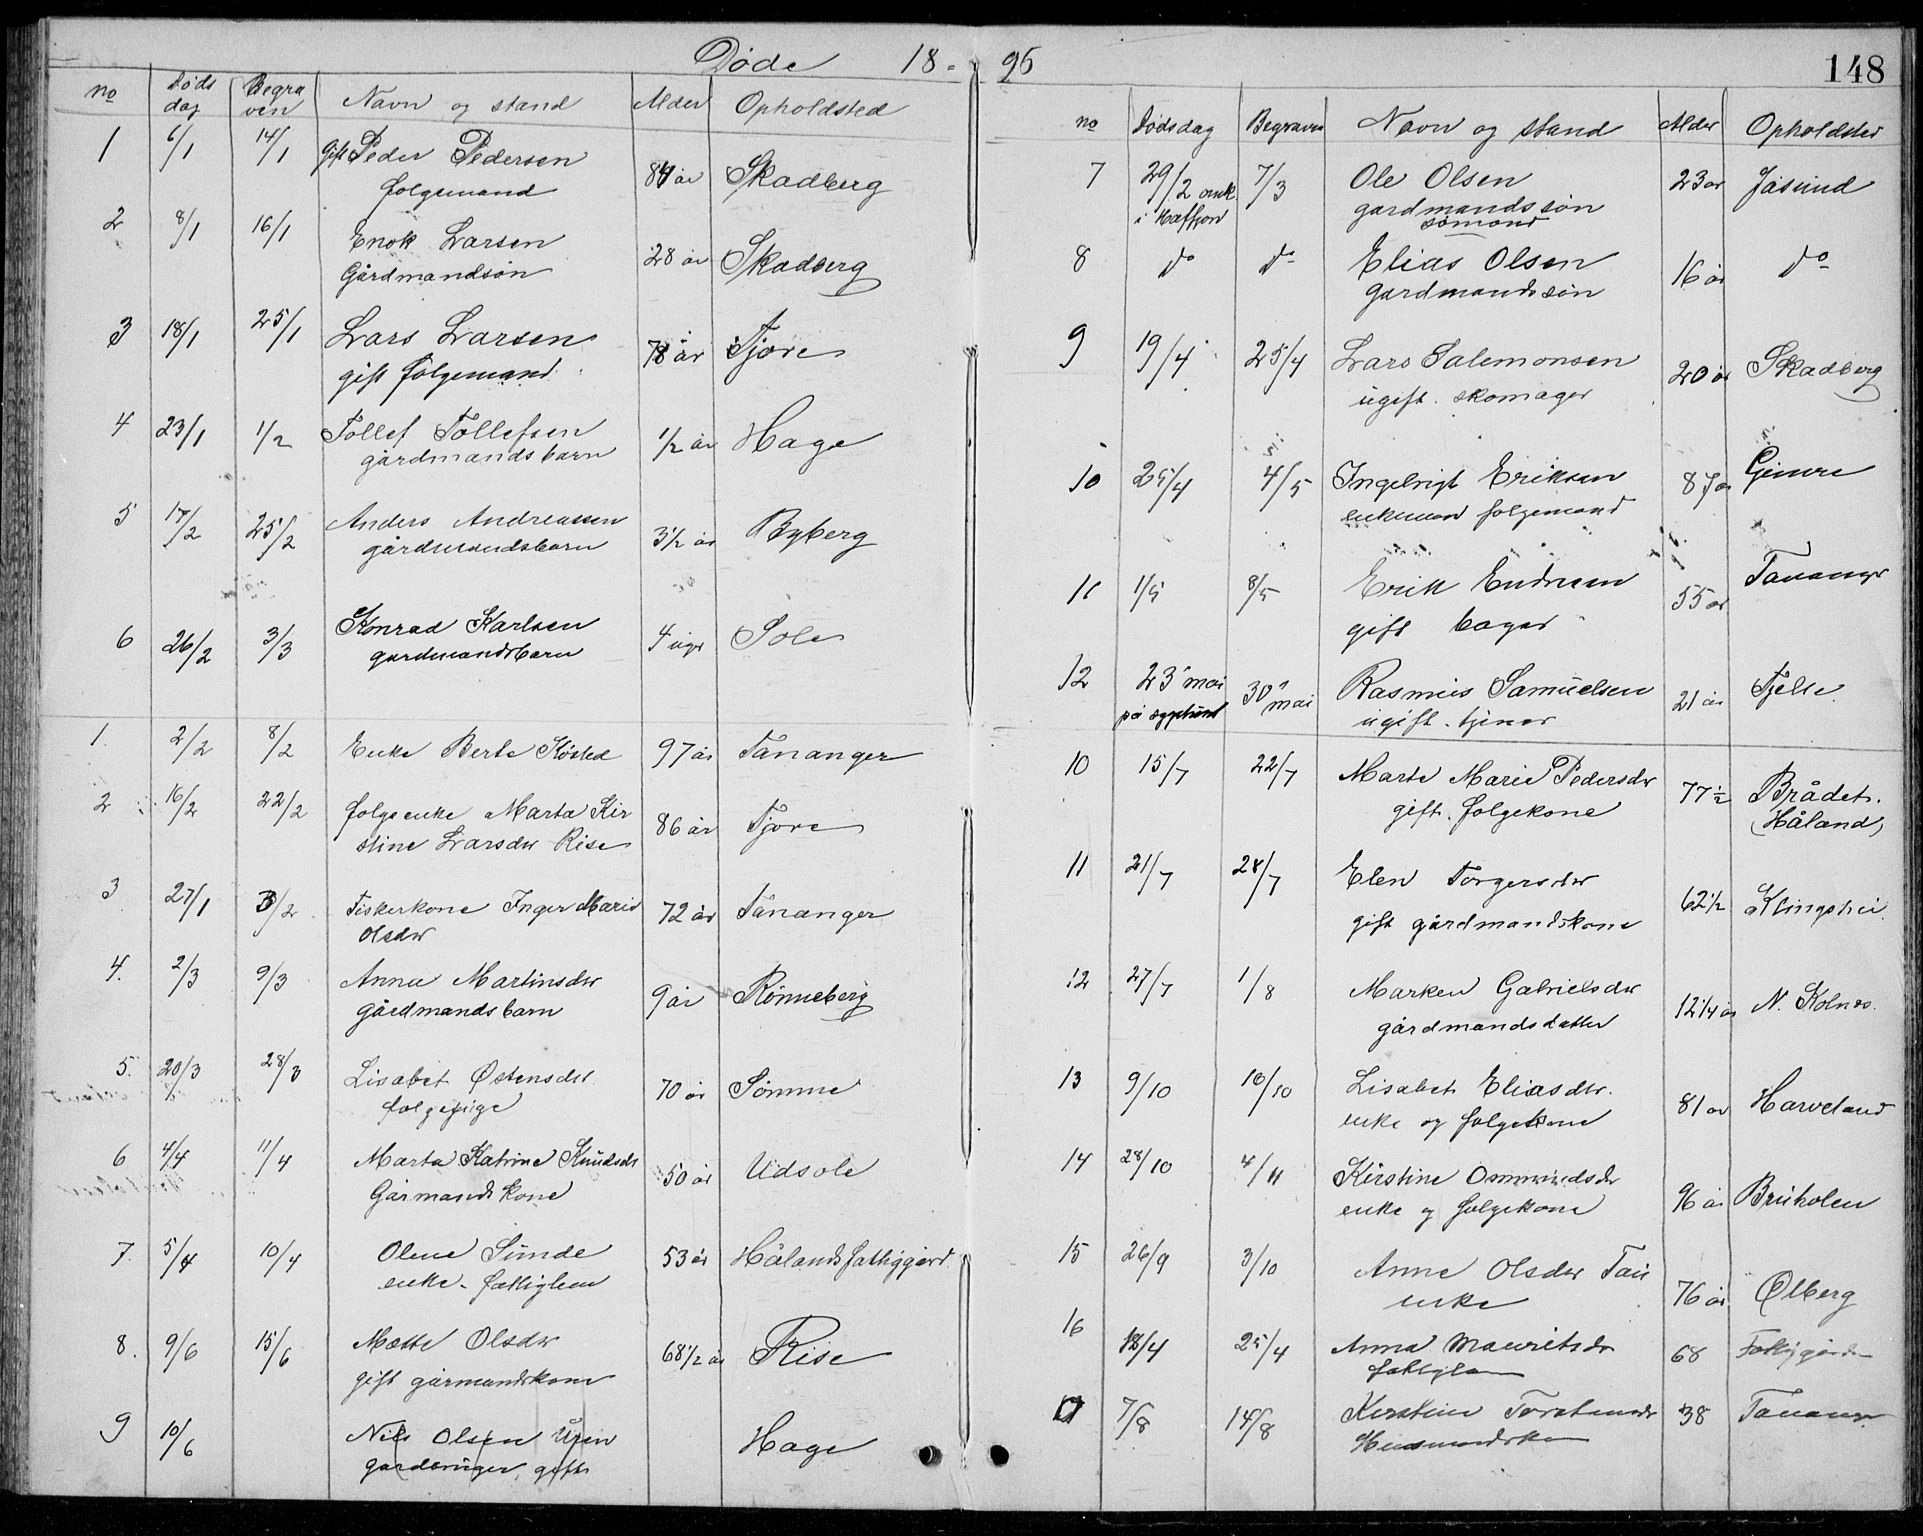 Døde 18-95
148
no Døds dag Begra ven Navn og stand Alder Opholdsted
1 6/1 14/1 gift Peder Pedersen 84 år Skadberg
folgemand
2 8/1 16/1 Enok Larsen 28 år Skadberg
Gårdmandsøn
3 18/1 25/1 Lars Larsen 78 år Tjore
gift folgemand
4 23/1 1/2 Tollef Tollefsen 1/2 år Hage
gårdmandsbarn
5 17/2 25/2 Anders Andreassen 3 1/2 år Byberg
gårdmandsbarn
6 26/2 3/3 Konrad Karlsen 4 uger Sole
gardmandsbarn
1. 2/2 8/2 Enke Berte Køsted 97 år Tananger
2 16/2 22/2 folgeenke Marta Kir 86 år Tjore
stine Larsdtr Rise
3 27/1 3/2 Fiskerkone Inger Marie 72 år Tananger
Olsdtr
4. 2/3 9/3 Anna Martinsdtr 9 år Rönneberg
gårdmandsbarn
5. 20/3 28/3 Lisabet Østensdtr 70 år Sømme
folgepige
6 4/4 11/4 Marta Katrine Knudsdtr 50 år Udsole
Gårmandskone
7. 5/4 10/4 Olene Sunde 53 år Hålands fattiggård
enke. fattiglem
8. 9/6 15/6 Mette Olsdtr 68 1/2 år Rise
gift gårmandskone
9 10/6 Nils Olsen Uren Hage
gardbruger, gift
no Dødsdag Begraven Navn og stand Alder Opholdsted
7 29/2 omk 7/3 Ole Olsen 23 år Jåsund
i Haffjord gardmandssøn
sømand
8 do do Elias Olsen 16 år do
gardmandssøn
9 19/4 25/4 Lars Salemonsen 20 år Skadberg
ugift. skomager
10 25/4 4/5 Ingebrigt Eriksen 87 år Gimre
enkemand folgemand
11 1/5 8/5 Erik Endresen 55 år Tananger
gift bager
12 23 mai 30 mai Rasmus Samuelsen 21 år Tjelle
på sygehuset ugift. tjener
10 15/7 22/7 Marte Marie Pedersdtr 77 1/2 Brådet.
gift. folgekone (Håland)
11 21/7 28/7 Elen Torgersdtr 62 1/2 Klingshei
gift gårdmandskone
12 27/7 1/8 Marken Gabrielsdtr 12 1/4 år N. Kolnes.
gårdmandsdatter
13 9/10 16/10 Lisabet Eliasdtr. 81 år Harveland
enke og folgekone
14 28/10 4/11 Kirstine Ommundsdtr 96 år Bruholen
enke og folgekone
15 26/9 3/10 Anne Olsdtr Tau 76 år Ølberg
enke
16 18/4 25/4 Anna Mauritsdtr 68 Fattiggården
fattiglem
17 7/8 14/8 Kirstine Torstensdtr 38 Tananger
Husmandskone